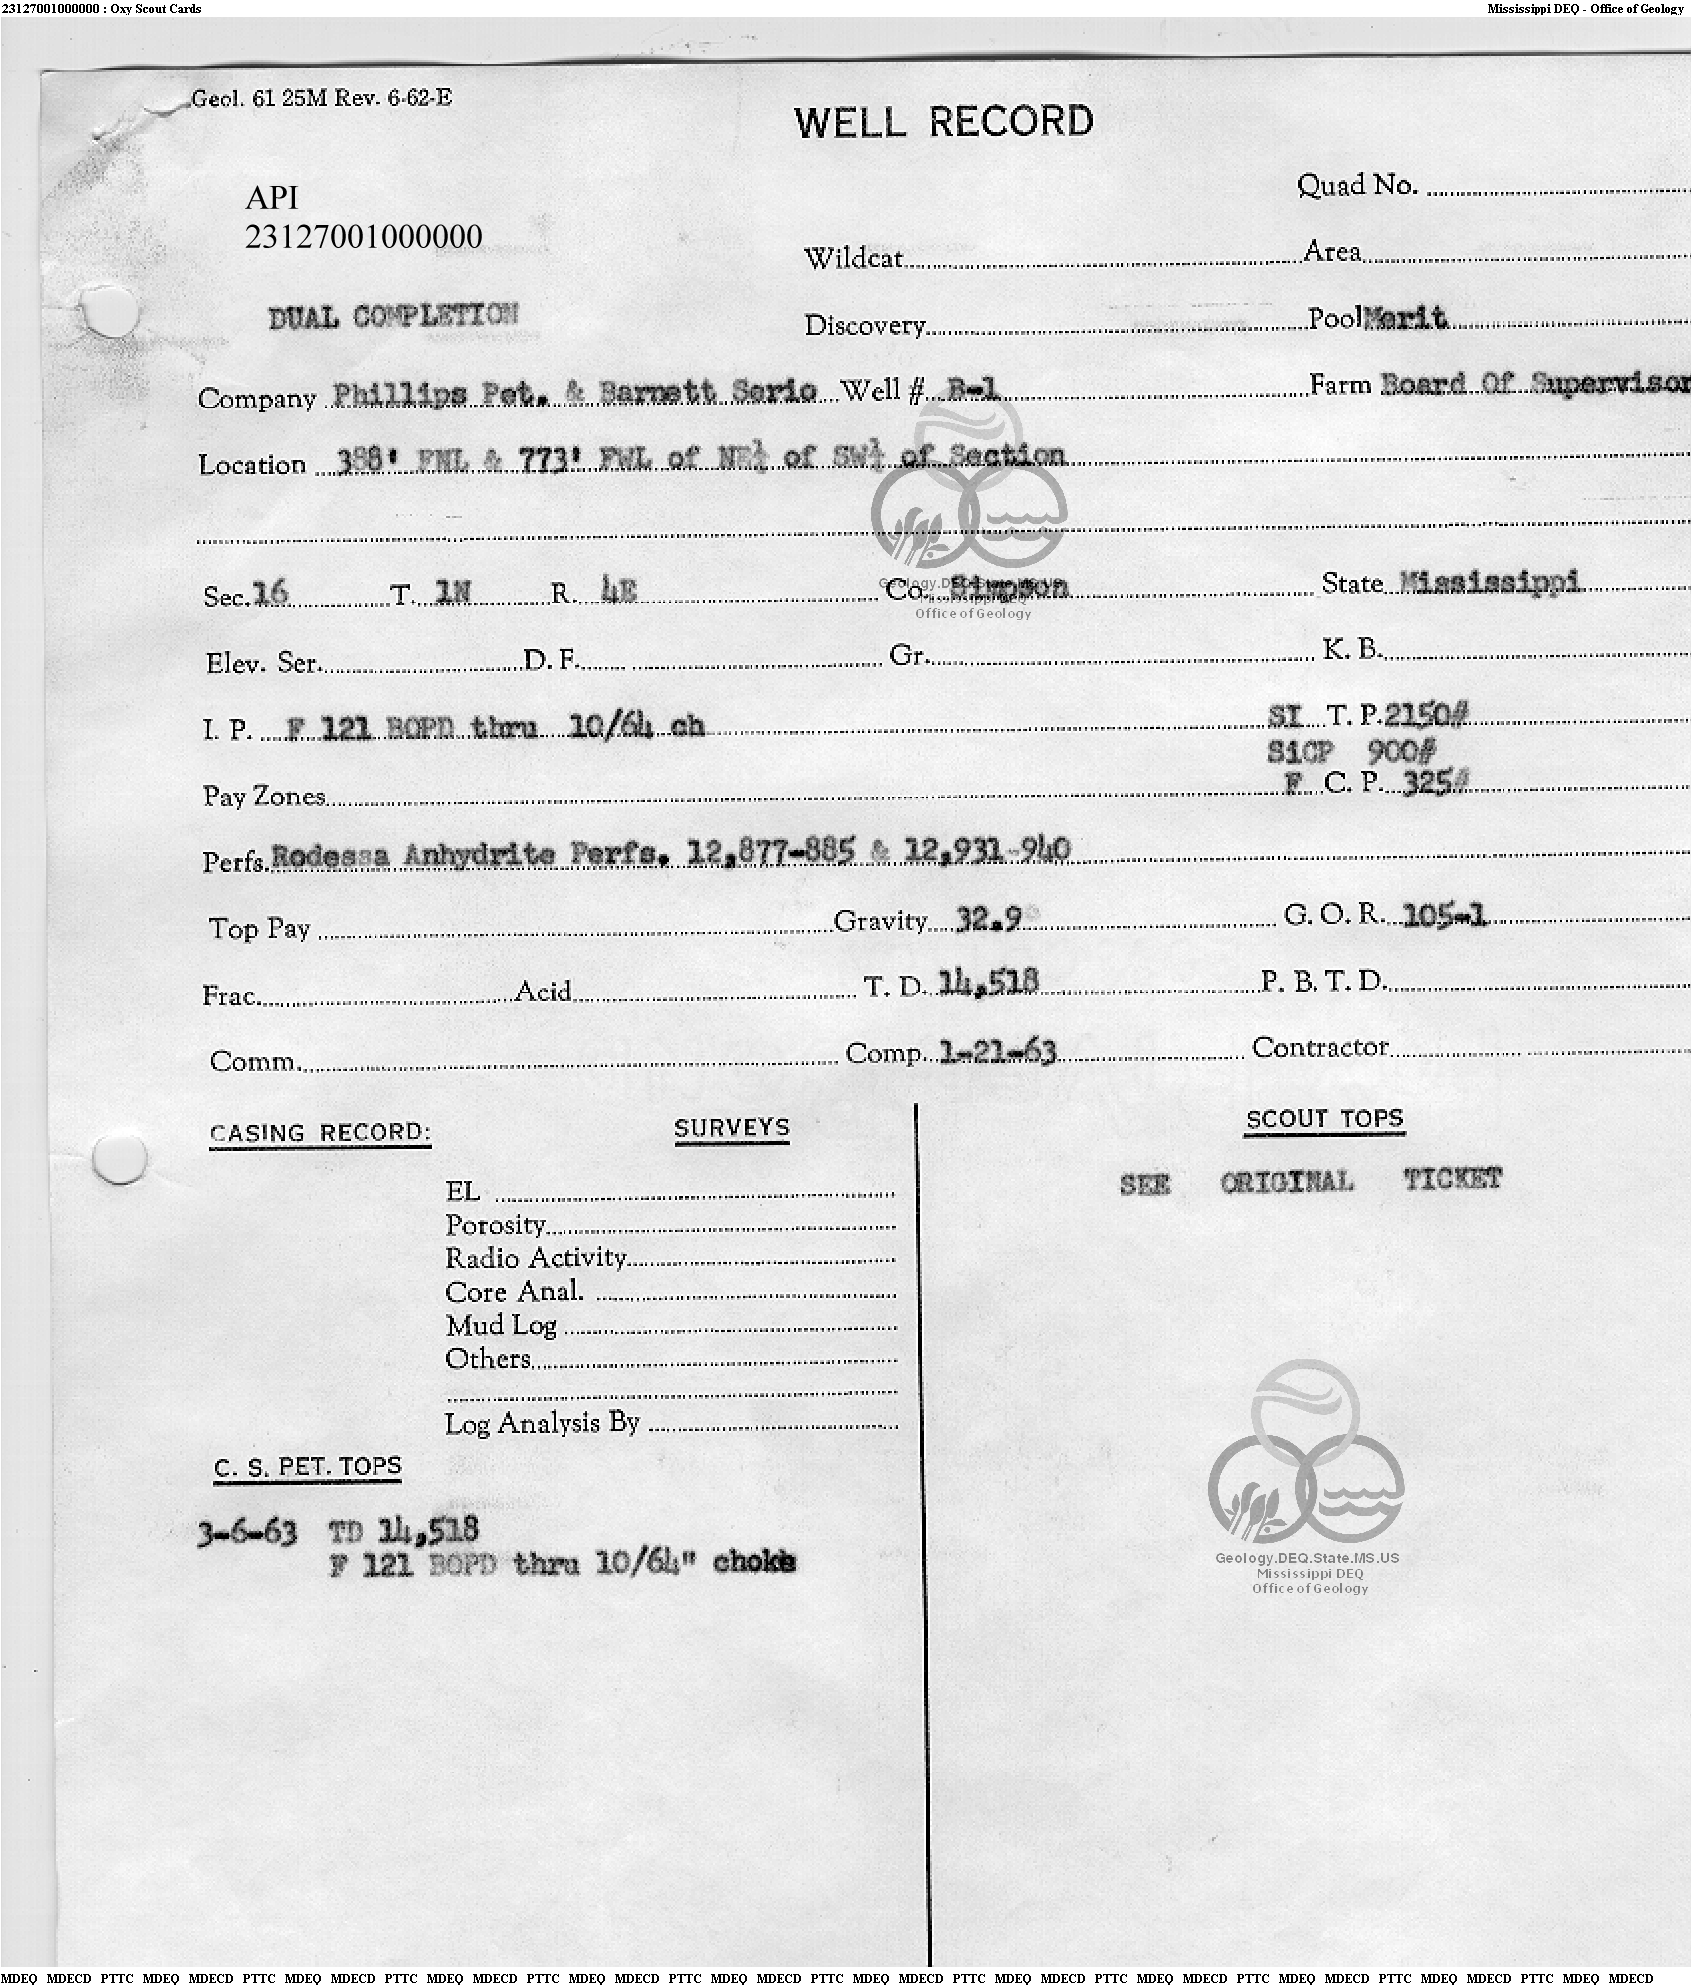 23127001000000 : Oxy Scout Cards Mississippi DEQ - Office of Geology
Geol. 61 25M Rev. 6-62-E
WELL RECORD
API
23127001000000
Quad No.
Wildcat Area
DUAL COMPLETION
Discovery Pool Merit
Company Phillips Pet. & Barnett Serio Well # B-1 Farm Board Of Supervisor
Location 388' FNL & 773' FWL of NE¼ of SW¼ of Section
Sec. 16 T. 1N R. 4E Co. Simpson State Mississippi
Geology.DEQ.State.MS.US
Mississippi DEQ
Office of Geology
Elev. Ser. D. F. Gr. K. B.
I. P. F 121 BOPD thru 10/64 ch SI T. P. 2150#
SiCP 900#
Pay Zones F C. P. 325#
Perfs. Rodessa Anhydrite Perfs. 12,877-885 & 12,931-940
Top Pay Gravity 32.9° G. O. R. 105-1
Frac. Acid T. D. 14,518 P. B. T. D.
Comm. Comp. 1-21-63 Contractor
CASING RECORD: SURVEYS SCOUT TOPS
SEE ORIGINAL TICKET
EL
Porosity
Radio Activity
Core Anal.
Mud Log
Others
Log Analysis By
C. S. PET. TOPS
3-6-63 TD 14,518
F 121 BOPD thru 10/64" choke
Geology.DEQ.State.MS.US
Mississippi DEQ
Office of Geology
MDEQ MDECD PTTC MDEQ MDECD PTTC MDEQ MDECD PTTC MDEQ MDECD PTTC MDEQ MDECD PTTC MDEQ MDECD PTTC MDEQ MDECD PTTC MDEQ MDECD PTTC MDEQ MDECD PTTC MDEQ MDECD PTTC MDEQ MDECD PTTC MDEQ MDECD